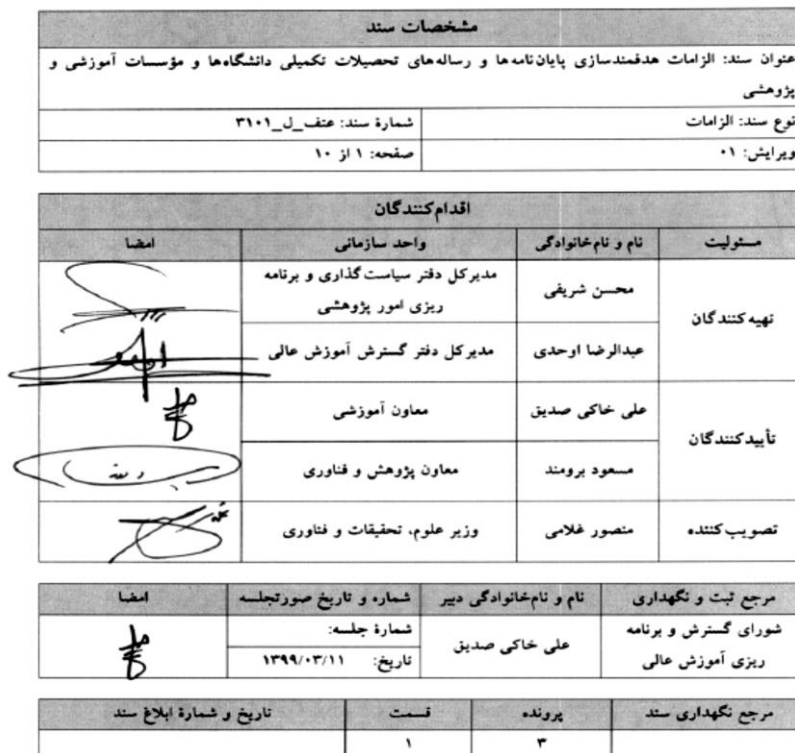 مشخصات سند
عنوان سند: الزامات هدفمندسازی پایان‌نامه‌ها و رساله‌های تحصیلات تکمیلی دانشگاه‌ها و مؤسسات آموزشی و
پژوهشی
نوع سند: الزامات
شمارهٔ سند: عتف_ل_۳۱۰۱
ویرایش: ۰۱
صفحه: ۱ از ۱۰
اقدام‌کنندگان
مسئولیت
نام و نام‌خانوادگی
واحد سازمانی
امضا
تهیه‌کنندگان
محسن شریفی
مدیرکل دفتر سیاست‌گذاری و برنامه
ریزی امور پژوهشی
عبدالرضا اوحدی
مدیرکل دفتر گسترش آموزش عالی
تأییدکنندگان
علی خاکی صدیق
معاون آموزشی
مسعود برومند
معاون پژوهش و فناوری
تصویب‌کننده
منصور غلامی
وزیر علوم، تحقیقات و فناوری
مرجع ثبت و نگهداری
نام و نام‌خانوادگی دبیر
شماره و تاریخ صورتجلسه
امضا
شورای گسترش و برنامه
ریزی آموزش عالی
علی خاکی صدیق
شمارهٔ جلسه:
تاریخ: ۱۳۹۹/۰۳/۱۱
مرجع نگهداری سند
پرونده
قسمت
تاریخ و شمارهٔ ابلاغ سند
۳
۱